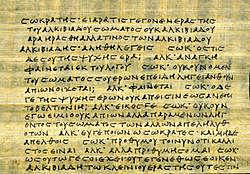 CΩΚΡΑΤΗC · ΕΙ ΑΡΑ ΤΙC ΓΕΓΟΝΕΝ ΕΡΑCΤΗC
ΤΟΥ ΑΛΚΙΒΙΑΔΟΥ CΩΜΑΤΟC ΟΥΚ ΑΛΚΙΒΙΑΔΟΥ
ΑΡΑ ΗΡΑCΘΗ ΑΛΛΑ ΤΙΝΟC ΤΩΝ ΑΛΚΙΒΙΑΔΟΥ
ΑΛΚΙΒΙΑΔΗC · ΑΛΗΘΗ ΛΕΓΕΙC CΩΚ · ΟCΤΙC
ΔΕ CΟΥ ΤΗC ΨΥΧΗC ΕΡΑΙ ; ΑΛΚ · ΑΝΑΓΚΗ
ΦΑΙΝΕΤΑΙ ΕΚ ΤΟΥ ΛΟΓΟΥ CΩΚ · ΟΥΚΟΥΝ Ο ΜΕΝ
ΤΟΥ CΩΜΑΤΟC CΟΥ ΕΡΩΝ ΕΠΕΙΔΗ ΛΗΓΕΙ ΑΝΘΟΥΝ
ΑΠΙΩΝ ΟΙΧΕΤΑΙ ; ΑΛΚ · ΦΑΙΝΕΤΑΙ CΩΚ · Ο ΔΕ
ΓΕ ΤΗC ΨΥΧΗC ΕΡΩΝ ΟΥΚ ΑΠΕΙCΙΝ ΕΩC ΑΝ ΕΠΙ
ΤΟ ΒΕΛΤΙΟΝ ΙΗΙ ; ΑΛΚ · ΕΙΚΟC ΓΕ CΩΚ · ΟΥΚΟΥΝ
ΕΓΩ ΕΙΜΙ Ο ΟΥΚ ΑΠΙΩΝ ΑΛΛΑ ΠΑΡΑΜΕΝΩΝ ΛΗΓΟΝ
ΤΟC ΤΟΥ CΩΜΑΤΟC ΤΩΝ ΑΛΛΩΝ ΑΠΕΛΗΛΥΘ
ΟΤΩΝ ΑΛΚ · ΕΥ ΓΕ ΠΟΙΩΝ Ω CΩΚΡΑΤΕC · ΚΑΙ ΜΗ
ΑΠΕΛΘΟΙC CΩΚ · ΠΡΟΘΥΜΟΥ ΤΟΙΝΥΝ ΟΤΙ ΚΑΛΛΙ
CΤΟC ΕΙΝΑΙ ΑΛΚ · ΑΛΛΑ ΠΡΟΘΥΜΗCΟΜΑΙ CΩΚ
ΩC ΟΥΤΩ ΓΕ CΟΙ ΕΧΕΙ ΟΥΤ ΕΓΕΝΕΘ ΩC ΕΟΙΚΕΝ
ΑΛΚΙΒΙΑΔΗΙ ΤΩΙ ΚΛΕΙΝΙΟΥ ΕΡΑCΤΗC ΟΥΤ ΕCΤΙΝ